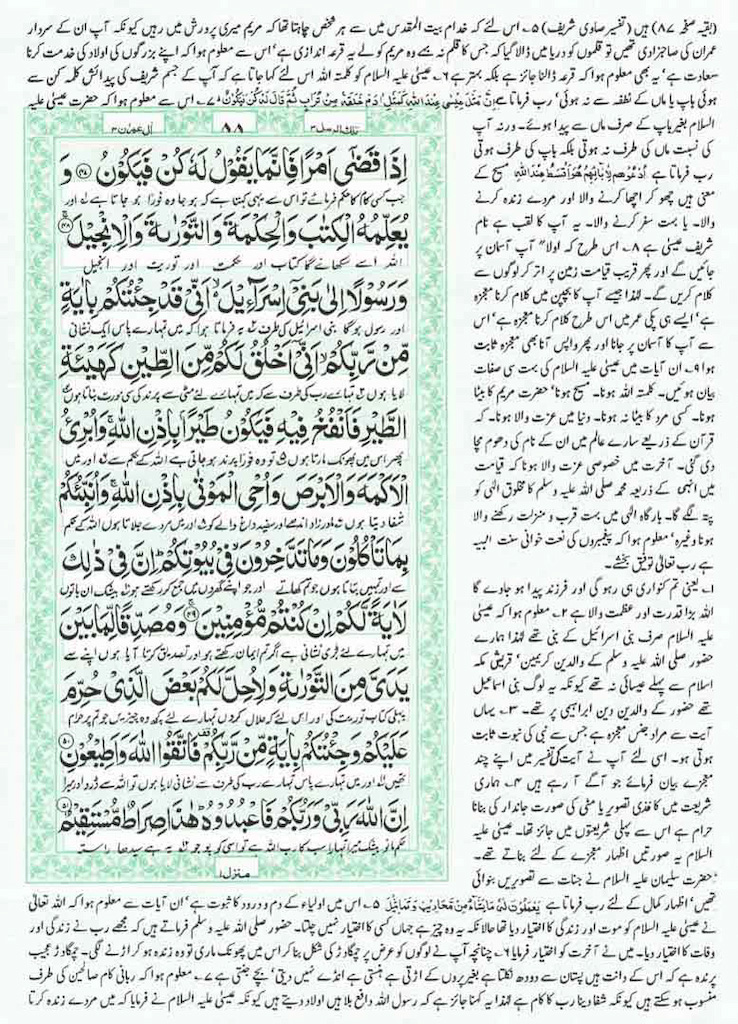 (بقیہ صفحہ ۸۷) ہیں (تفسیر صاوی شریف) ۵۔ اس لئے کہ خدام بیت المقدس میں سے ہر شخص چاہتا تھا کہ مریم میری پرورش میں رہیں کیونکہ آپ ان کے سردار
عمران کی صاحبزادی تھیں تو قلموں کو دریا میں ڈالا گیا کہ جس کا قلم نہ بہے وہ مریم کو لے یہ قرعہ اندازی ہے' اس سے معلوم ہوا کہ اپنے بزرگوں کی اولاد کی خدمت کرنا
سعادت ہے' یہ بھی معلوم ہوا کہ قرعہ ڈالنا جائز ہے بلکہ بہتر ہے ۶۔ عیسیٰ علیہ السلام کو کلمتہ اللہ اس لئے کہا جاتا ہے کہ آپ کے جسم شریف کی پیدائش کلمہ کن سے
ہوئی باپ یا ماں کے نطفہ سے نہ ہوئی' رب فرماتا ہے اِنَّ مَثَلَ عِیْسٰی عِنْدَ اللہِ کَمَثَلِ اٰدَمَ خَلَقَہٗ مِنْ تُرَابٍ ثُمَّ قَالَ لَہٗ کُنْ فَیَکُوْنُ ۷۔ اس سے معلوم ہوا کہ حضرت عیسیٰ علیہ
السلام بغیر باپ کے صرف ماں سے پیدا ہوئے۔ ورنہ آپ
کی نسبت ماں کی طرف نہ ہوتی بلکہ باپ کی طرف ہوتی
رب فرماتا ہے اُدْعُوْھُمْ لِاٰبَآئِھِمْ ھُوَ اَقْسَطُ عِنْدَ اللہِ مسیح کے
معنی ہیں چھو کر اچھا کرنے والا اور مردے زندہ کرنے
والا۔ یا بہت سفر کرنے والا۔ یہ آپ کا لقب ہے نام
شریف عیسیٰ ہے ۸۔ اس طرح کہ اولاً آپ آسمان پر
جائیں گے اور پھر قریب قیامت زمین پر اتر کر لوگوں سے
کلام کریں گے۔ لہٰذا جیسے آپ کا بچپن میں کلام کرنا معجزہ
ہے' ایسے ہی پکی عمر میں اس طرح کلام کرنا معجزہ ہے' اس
سے آپ کا آسمان پر جانا اور پھر واپس آنا بھی معجزہ ثابت
ہوا ۹۔ ان آیات میں عیسیٰ علیہ السلام کی بہت سی صفات
بیان ہوئیں۔ کلمتہ اللہ ہونا۔ مسیح ہونا' حضرت مریم کا بیٹا
ہونا۔ کسی مرد کا بیٹا نہ ہونا۔ دنیا میں عزت والا ہونا۔ کہ
قرآن کے ذریعے سارے عالم میں ان کے نام کی دھوم مچا
دی گئی۔ آخرت میں خصوصی عزت والا ہونا کہ قیامت
میں انہی کے ذریعہ محمد صلی اللہ علیہ وسلم کا مخلوق الٰہی کو
پتہ لگے گا۔ بارگاہ الٰہی میں بہت قرب و منزلت رکھنے والا
ہونا وغیرہ' معلوم ہوا کہ پیغمبروں کی نعت خوانی سنت الٰہیہ
ہے رب تعالیٰ توفیق بخشے۔
تلک الرسل ۳ ۸۸ اٰل عمرٰن ۳
اِذَا قَضٰٓی اَمْرًا فَاِنَّمَا یَقُوْلُ لَہٗ کُنْ فَیَکُوْنُ ﴿۴۷﴾ وَ
جب کسی کام کا حکم فرمائے تو اس سے یہی کہتا ہے کہ ہو جا وہ فورًا ہو جاتا ہے لہ اور
یُعَلِّمُہُ الْکِتٰبَ وَالْحِکْمَۃَ وَالتَّوْرٰىۃَ وَالْاِنْجِیْلَ ﴿۴۸﴾
اللہ اسے سکھائے گا کتاب اور حکمت اور توریت اور انجیل
وَرَسُوْلًا اِلٰی بَنِیْٓ اِسْرَآءِیْلَ اَنِّیْ قَدْ جِئْتُکُمْ بِاٰیَۃٍ
اور رسول ہو گا بنی اسرائیل کی طرف یہ فرماتا ہوا کہ میں تمہارے پاس ایک نشانی
مِّنْ رَّبِّکُمْ اَنِّیْٓ اَخْلُقُ لَکُمْ مِّنَ الطِّیْنِ کَہَیْئَۃِ
لایا ہوں تمہارے رب کی طرف سے کہ میں تمہارے لئے مٹی سے پرند کی سی مورت بناتا ہوں
الطَّیْرِ فَاَنْفُخُ فِیْہِ فَیَکُوْنُ طَیْرًۢا بِاِذْنِ اللہِ وَاُبْرِئُ
پھر اس میں پھونک مارتا ہوں تو وہ فورًا پرند ہو جاتی ہے اللہ کے حکم سے اور میں
الْاَکْمَہَ وَالْاَبْرَصَ وَاُحْیِ الْمَوْتٰی بِاِذْنِ اللہِ وَاُنَبِّئُکُمْ
شفا دیتا ہوں مادر زاد اندھے اور سفید داغ والے کو اور میں مردے جلاتا ہوں اللہ کے حکم
بِمَا تَاْکُلُوْنَ وَمَا تَدَّخِرُوْنَ فِیْ بُیُوْتِکُمْ اِنَّ فِیْ ذٰلِکَ
سے اور تمہیں بتاتا ہوں جو تم کھاتے اور جو اپنے گھروں میں جمع کر رکھتے ہو بیشک ان باتوں
لَاٰیَۃً لَّکُمْ اِنْ کُنْتُمْ مُّؤْمِنِیْنَ ﴿۴۹﴾ وَمُصَدِّقًا لِّمَا بَیْنَ
میں تمہارے لئے بڑی نشانی ہے اگر تم ایمان رکھتے ہو اور تصدیق کرتا آیا ہوں اپنے سے
یَدَیَّ مِنَ التَّوْرٰىۃِ وَلِاُحِلَّ لَکُمْ بَعْضَ الَّذِیْ حُرِّمَ
پہلی کتاب توریت کی اور اس لئے کہ حلال کروں تمہارے لئے کچھ وہ چیزیں جو تم پر حرام
عَلَیْکُمْ وَجِئْتُکُمْ بِاٰیَۃٍ مِّنْ رَّبِّکُمْ فَاتَّقُوا اللہَ وَاَطِیْعُوْنِ ﴿۵۰﴾
تھیں اور میں تمہارے پاس تمہارے رب کی طرف سے نشانی لایا ہوں تو اللہ سے ڈرو اور میرا
اِنَّ اللہَ رَبِّیْ وَرَبُّکُمْ فَاعْبُدُوْہُ ھٰذَا صِرَاطٌ مُّسْتَقِیْمٌ ﴿۵۱﴾
حکم مانو بیشک میرا تمہارا سب کا رب اللہ ہے تو اسی کو پوجو یہ ہے سیدھا راستہ
منزل ۱
۱۔ یعنی تم کنواری ہی رہو گی اور فرزند پیدا ہو جاوے گا
اللہ بڑا قدرت اور عظمت والا ہے ۲۔ معلوم ہوا کہ عیسیٰ
علیہ السلام صرف بنی اسرائیل کے نبی تھے لہٰذا ہمارے
حضور صلی اللہ علیہ وسلم کے والدین کریمین' قریش مکہ
اسلام سے پہلے عیسائی نہ تھے کیونکہ یہ لوگ بنی اسماعیل
تھے حضور کے والدین دین ابراہیمی پر تھے۔ ۳۔ یہاں
آیت سے مراد جنس معجزہ ہے جس سے نبی کی نبوت ثابت
ہوتی ہو۔ اسی لئے آپ نے آیت کی تفسیر میں اپنے چند
معجزے بیان فرمائے جو آگے آ رہے ہیں ۴۔ ہماری
شریعت میں کاغذی تصویر یا مٹی کی صورت جاندار کی بنانا
حرام ہے اس سے پہلی شریعتوں میں جائز تھا۔ عیسیٰ علیہ
السلام یہ صورتیں اظہار معجزے کے لئے بناتے تھے۔
حضرت سلیمان علیہ السلام نے جنات سے تصویریں بنوائی
تھیں' اظہار کمال کے لئے رب فرماتا ہے یَعْمَلُوْنَ لَہٗ مَا یَشَآءُ مِنْ مَّحَارِیْبَ وَتَمَاثِیْلَ ۵۔ اس میں اولیاء کے دم و درود کا ثبوت ہے' ان آیات سے معلوم ہوا کہ اللہ تعالیٰ
نے عیسیٰ علیہ السلام کو موت اور زندگی کا اختیار دیا تھا حالانکہ یہ وہ چیز ہے جہاں کسی کا اختیار نہیں چلتا۔ حضور صلی اللہ علیہ وسلم نے فرمایا کہ مجھے رب نے زندگی اور
وفات کا اختیار دیا۔ میں نے آخرت کو اختیار فرمایا ۶۔ چنانچہ آپ نے لوگوں کو عرض پر چمگادڑ کی شکل بنا کر اس میں پھونک ماری تو وہ زندہ ہو کر اڑنے لگی۔ چمگادڑ عجیب
پرندہ ہے کہ اس کے دانت ہیں پستان سے دودھ نکلتا ہے بغیر پروں کے اڑتی ہے ہنستی ہے انڈے نہیں دیتی' بچے جنتی ہے ۷۔ معلوم ہوا کہ ربانی کام صالحین کی طرف
منسوب ہو سکتے ہیں کیونکہ شفا دینا رب کا کام ہے لہٰذا یہ کہنا جائز ہے کہ رسول اللہ دافع بلا ہیں اولاد دیتے ہیں کیونکہ عیسیٰ علیہ السلام نے فرمایا کہ میں مردے زندہ کرتا